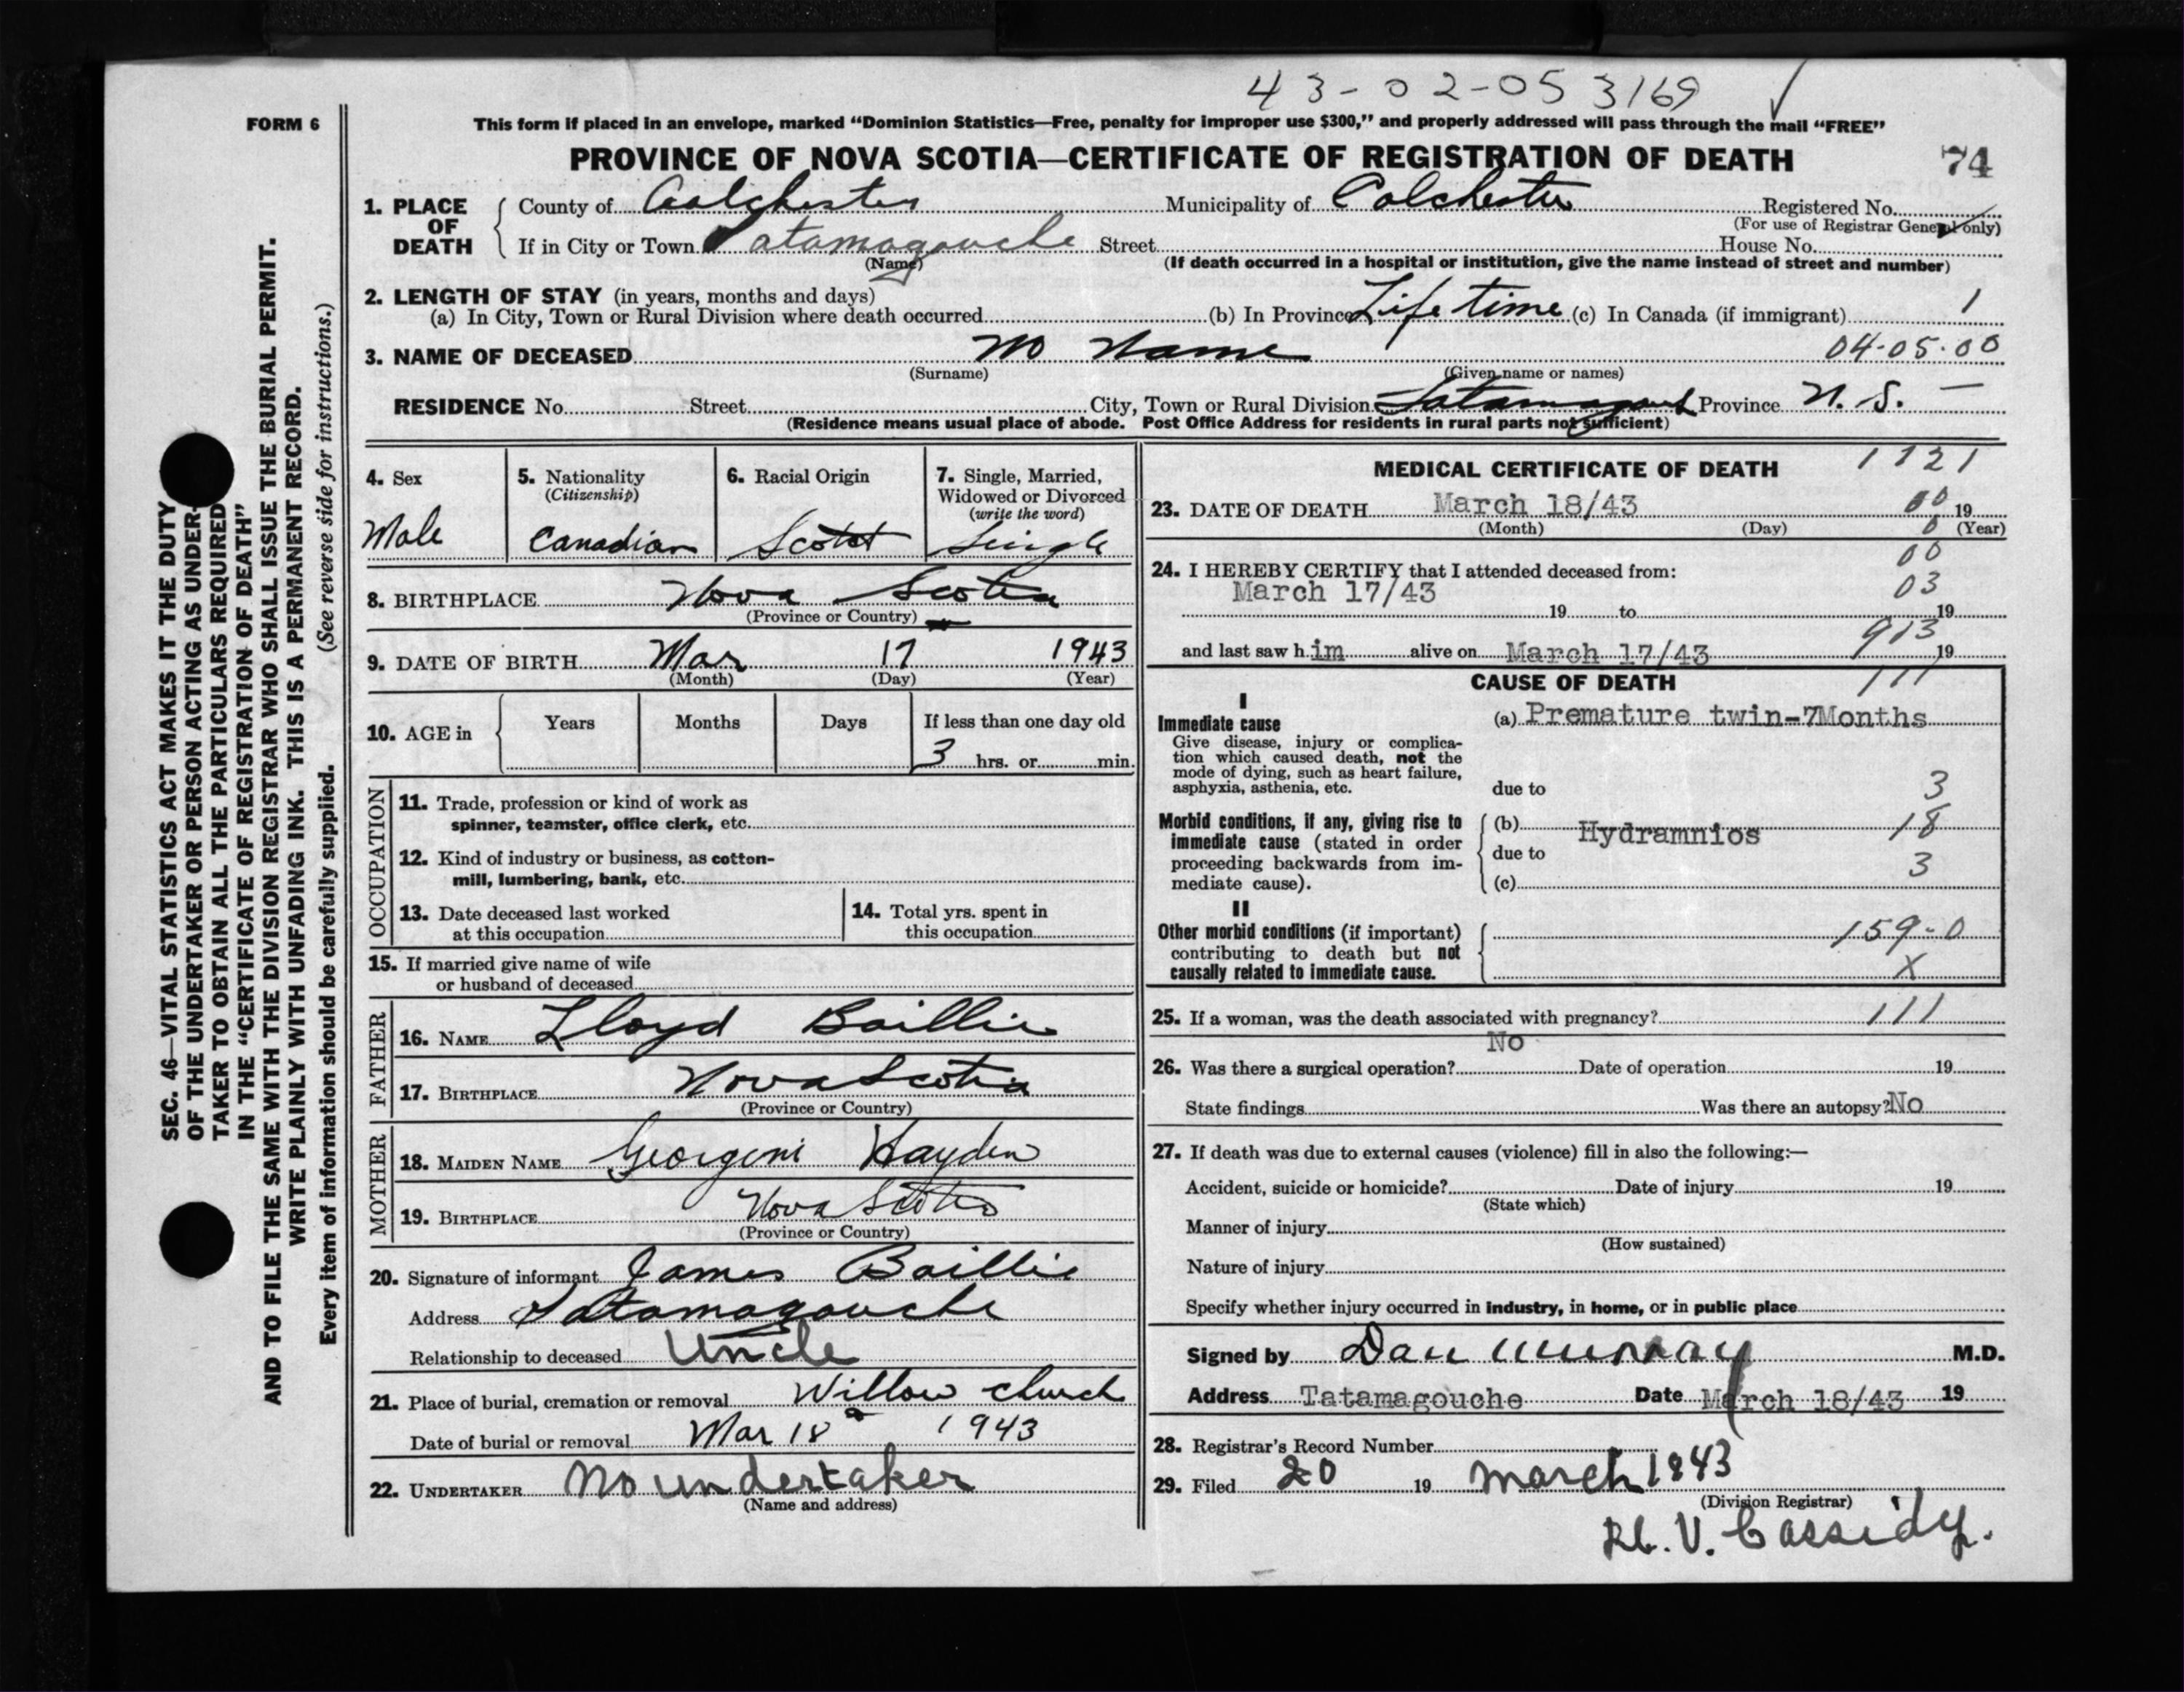 43-02-05 3169
FORM 6
This form if placed in an envelope, marked "Dominion Statistics—Free, penalty for improper use $300," and properly addressed will pass through the mail "FREE"
PROVINCE OF NOVA SCOTIA—CERTIFICATE OF REGISTRATION OF DEATH 74
1. PLACE OF DEATH
County of Colchester Municipality of Colchester Registered No.
(For use of Registrar General only)
If in City or Town Tatamagouche Street House No.
(Name) (If death occurred in a hospital or institution, give the name instead of street and number)
2. LENGTH OF STAY (in years, months and days)
(a) In City, Town or Rural Division where death occurred (b) In Province Life time (c) In Canada (if immigrant) 1
3. NAME OF DECEASED no name 04-05-00
(Surname) (Given name or names)
RESIDENCE No. Street City, Town or Rural Division Province N.S. —
(Residence means usual place of abode. Post Office Address for residents in rural parts not sufficient)
4. Sex
Male
5. Nationality
(Citizenship)
Canadian
6. Racial Origin
7. Single, Married,
Widowed or Divorced
(write the word)
Single
8. BIRTHPLACE Nova Scotia
(Province or Country)
9. DATE OF BIRTH Mar 17 1943
(Month) (Day) (Year)
10. AGE in
Years Months Days If less than one day old
3 hrs. or min.
OCCUPATION
11. Trade, profession or kind of work as
spinner, teamster, office clerk, etc.
12. Kind of industry or business, as cotton-
mill, lumbering, bank, etc.
13. Date deceased last worked
at this occupation
14. Total yrs. spent in
this occupation
15. If married give name of wife
or husband of deceased
FATHER
16. NAME Lloyd Baillie
17. BIRTHPLACE Nova Scotia
(Province or Country)
MOTHER
18. MAIDEN NAME Georgeni Hayden
19. BIRTHPLACE Nova Scotia
(Province or Country)
20. Signature of informant James Baillie
Address Tatamagouche
Relationship to deceased Uncle
21. Place of burial, cremation or removal Willow church
Date of burial or removal Mar 18 1943
22. UNDERTAKER No undertaker
(Name and address)
MEDICAL CERTIFICATE OF DEATH 1121
23. DATE OF DEATH March 18/43 00 19
(Month) (Day) 0 (Year)
00
24. I HEREBY CERTIFY that I attended deceased from:
March 17/43 03
19 to 19
and last saw him alive on March 17/43 913 19
CAUSE OF DEATH 111
I
Immediate cause
Give disease, injury or complica-
tion which caused death, not the
mode of dying, such as heart failure,
asphyxia, asthenia, etc.
(a) Premature twin-7Months
due to 3
Morbid conditions, if any, giving rise to
immediate cause (stated in order
proceeding backwards from im-
mediate cause).
(b) Hydramnios 18
due to
3
(c)
II
Other morbid conditions (if important)
contributing to death but not
causally related to immediate cause.
159-0
X
25. If a woman, was the death associated with pregnancy? 111
No
26. Was there a surgical operation? Date of operation 19
State findings Was there an autopsy? No
27. If death was due to external causes (violence) fill in also the following:—
Accident, suicide or homicide? Date of injury 19
(State which)
Manner of injury
(How sustained)
Nature of injury
Specify whether injury occurred in industry, in home, or in public place
Signed by Dan Murray M.D.
Address Tatamagouche Date March 18/43 19
28. Registrar's Record Number
29. Filed 20 19 march 1943
(Division Registrar)
V. Cassidy.
SEC. 46—VITAL STATISTICS ACT MAKES IT THE DUTY
OF THE UNDERTAKER OR PERSON ACTING AS UNDER-
TAKER TO OBTAIN ALL THE PARTICULARS REQUIRED
IN THE "CERTIFICATE OF REGISTRATION OF DEATH"
AND TO FILE THE SAME WITH THE DIVISION REGISTRAR WHO SHALL ISSUE THE BURIAL PERMIT.
WRITE PLAINLY WITH UNFADING INK. THIS IS A PERMANENT RECORD.
Every item of information should be carefully supplied. (See reverse side for instructions.)